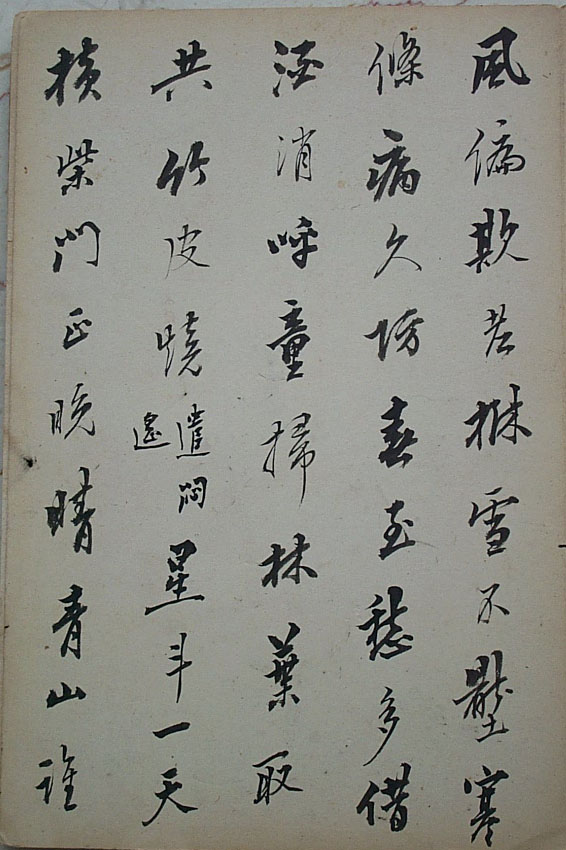 風偏欺老樹雪不壓寒
條病久防春至愁多借
酒消呼童掃林葉取
共竹皮燒
遣悶
遙
星斗一天
橫柴門正晚晴青山誰